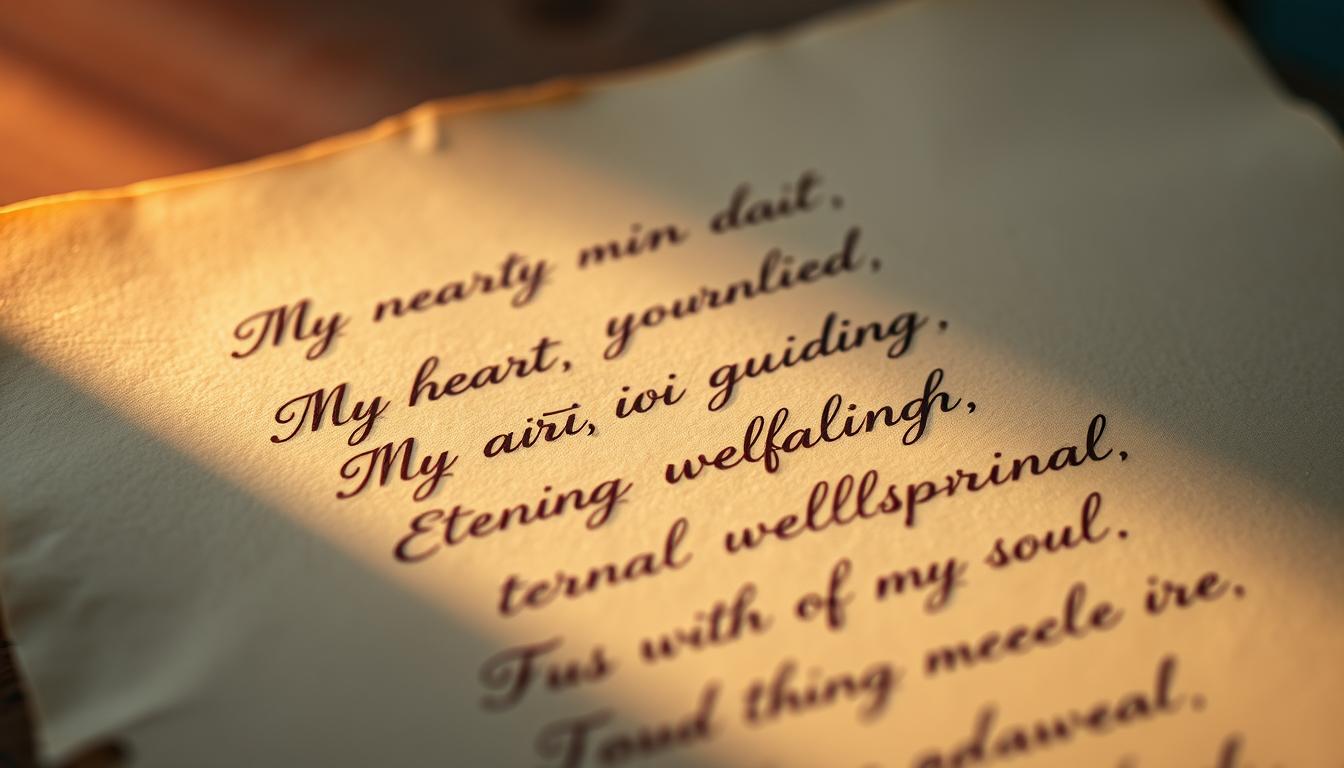 My nearty min dait,
My heart, yournlied,
My airi, ioi guiding,
Etening welfalingh,
ternal welllsprinal,
Fus with of my soul.
Toud thing meecle ire.
adaweal.